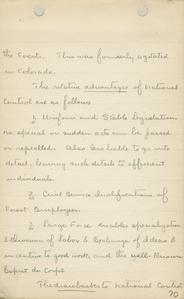 the Forests. This was formerly agitated
in Colorado.
The relative advantages of National
Control are as follows
1 Uniform and Stable Legislation
no special or sudden acts can be passed
or repealed. Also less liable to go into
detail, leaving such details to efficient
individuals.
2 Civil Service Qualifications of
Forest Employees.
3 Large Force enables specialization
& Division of Labor & Exchange of Ideas &
incentive to good work, and the well-known
Esprit du Corps
The drawbacks to National Control
70